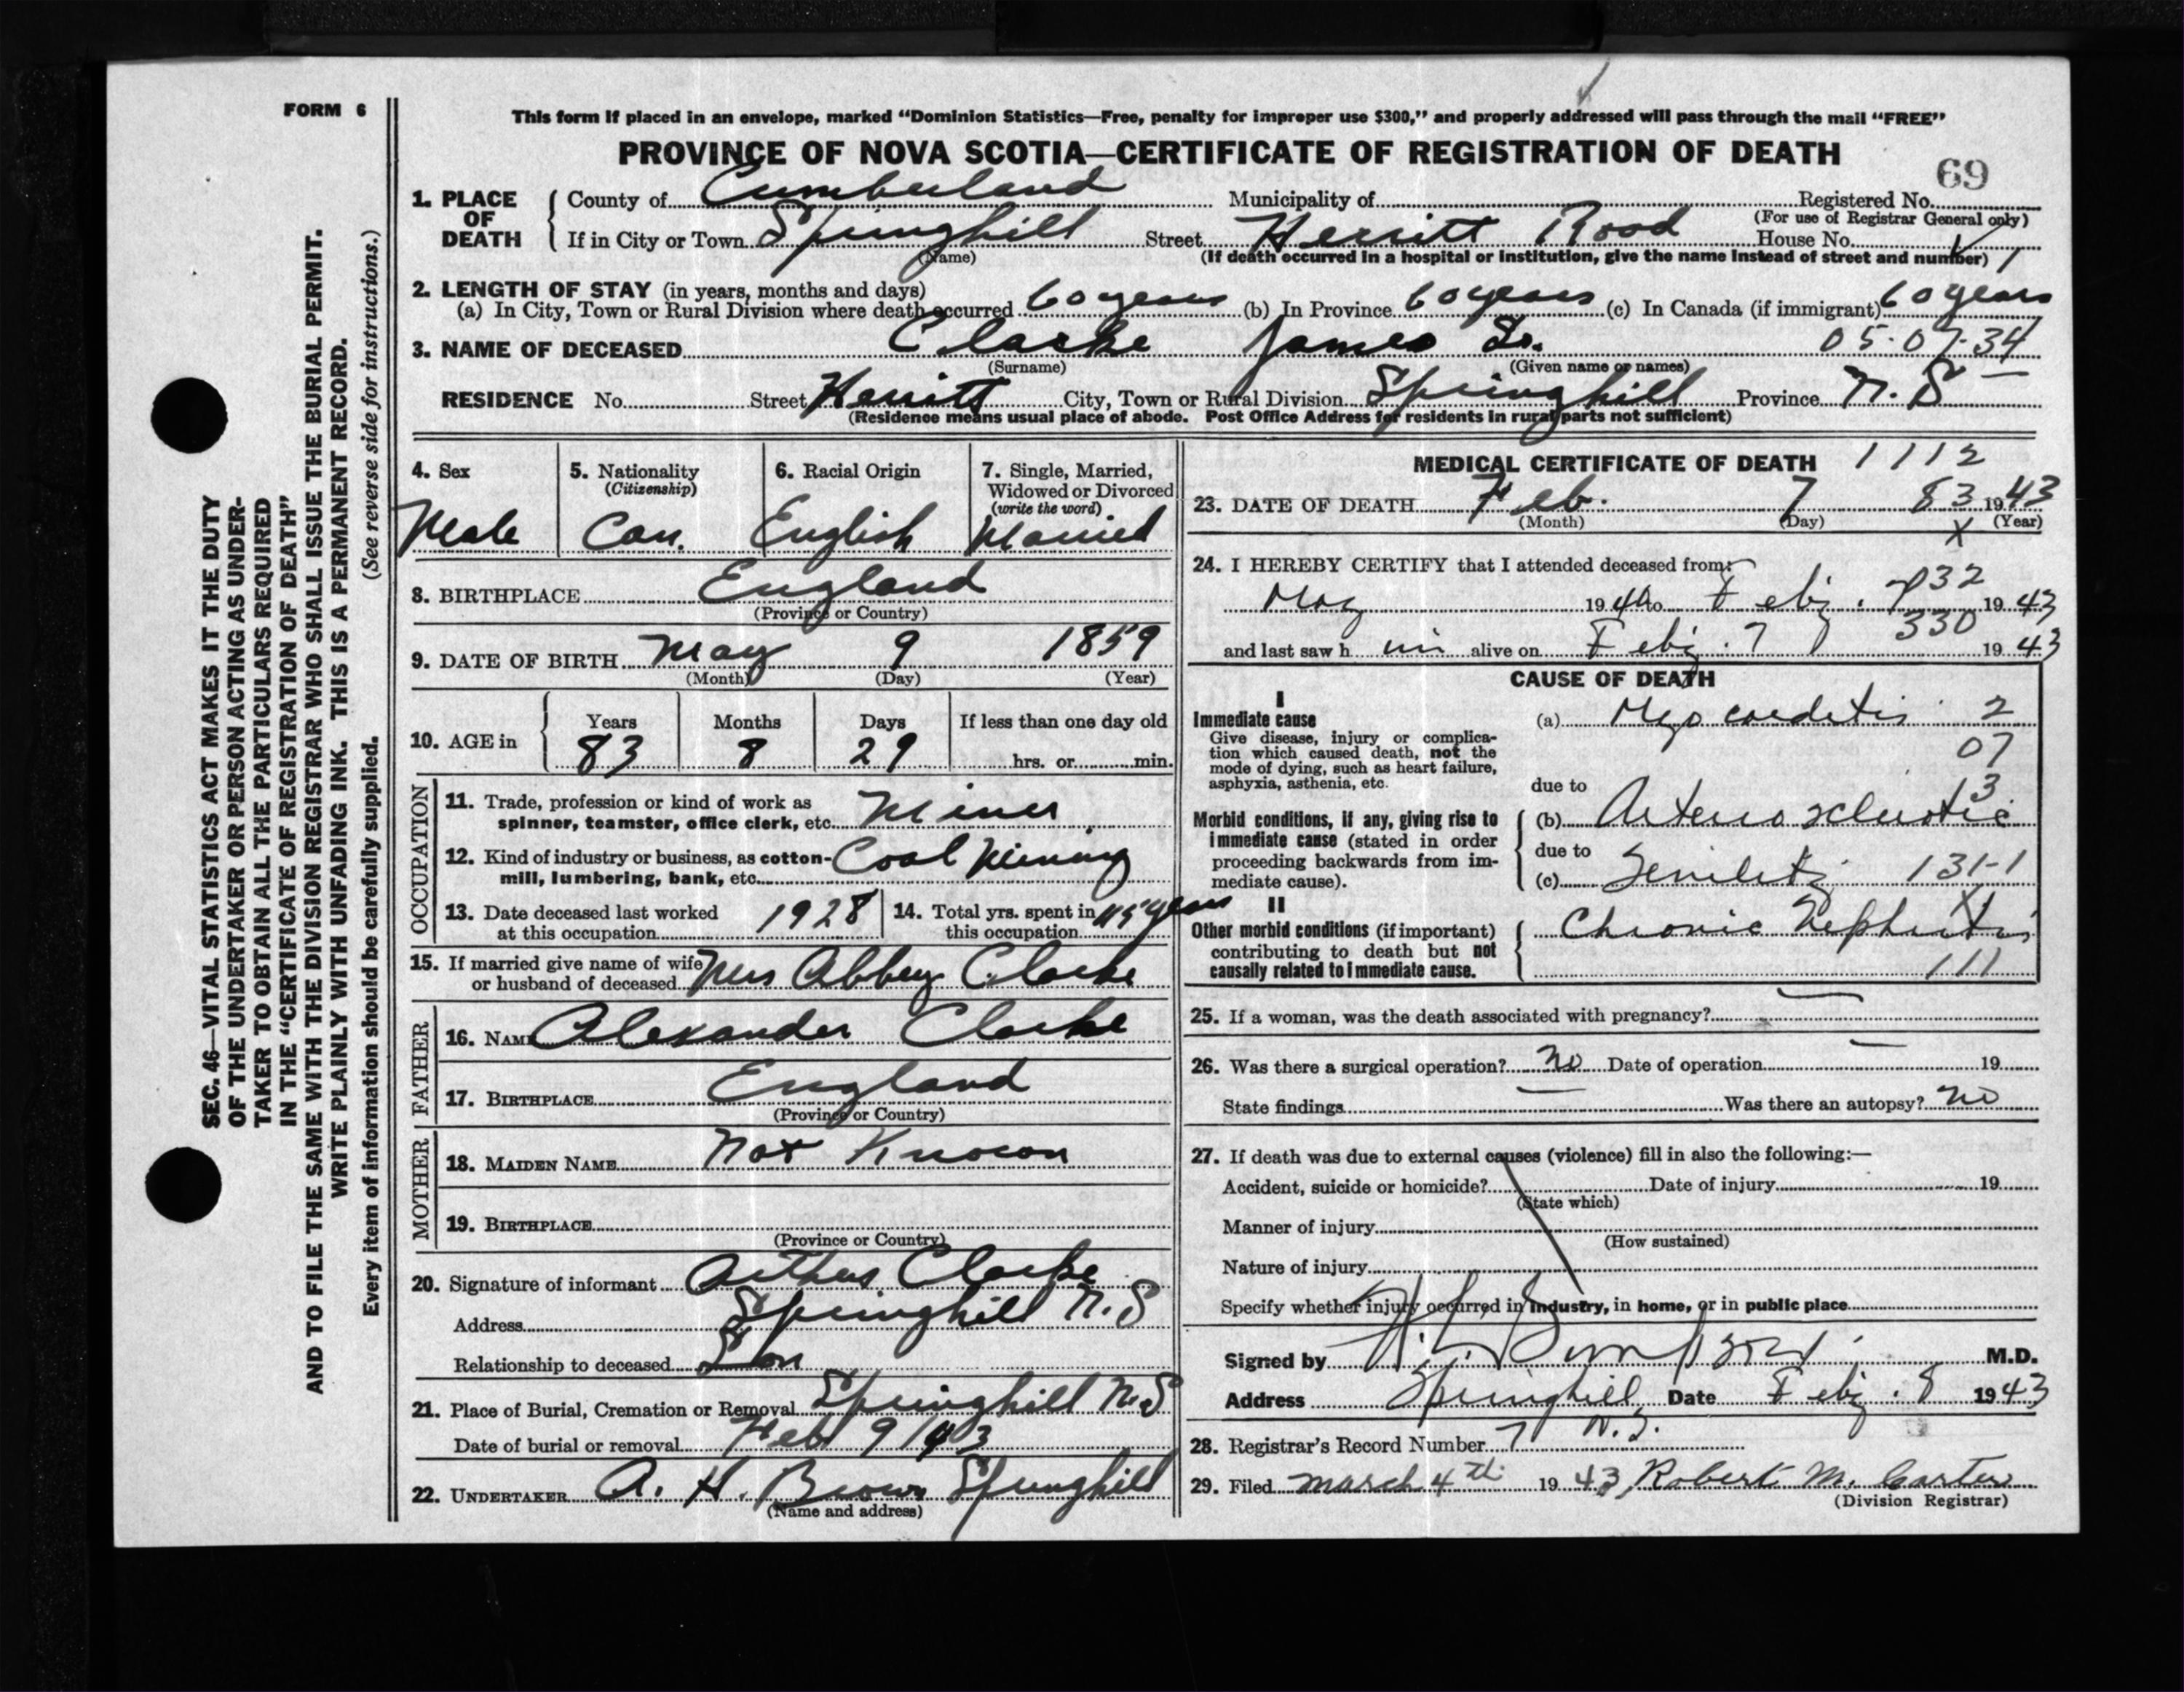 FORM 6
This form if placed in an envelope, marked "Dominion Statistics—Free, penalty for improper use $300," and properly addressed will pass through the mail "FREE"
PROVINCE OF NOVA SCOTIA—CERTIFICATE OF REGISTRATION OF DEATH
69
1. PLACE OF DEATH County of Cumberland Municipality of Registered No.
(For use of Registrar General only)
If in City or Town Springhill Street Herritt Road House No.
(Name)
(If death occurred in a hospital or institution, give the name instead of street and number)
2. LENGTH OF STAY (in years, months and days)
(a) In City, Town or Rural Division where death occurred 60 years (b) In Province 60 years (c) In Canada (if immigrant) 60 years
3. NAME OF DECEASED Clarke James Sr. 05-07-34
(Surname) (Given name or names)
RESIDENCE No. Street Herritt City, Town or Rural Division Springhill Province N. S
(Residence means usual place of abode. Post Office Address for residents in rural parts not sufficient)
4. Sex Male
5. Nationality (Citizenship) Can.
6. Racial Origin English
7. Single, Married, Widowed or Divorced (write the word) Married
8. BIRTHPLACE England
(Province or Country)
9. DATE OF BIRTH May 9 1859
(Month) (Day) (Year)
10. AGE in Years 83 Months 8 Days 29 If less than one day old
hrs. or min.
OCCUPATION
11. Trade, profession or kind of work as
spinner, teamster, office clerk, etc. Miner
12. Kind of industry or business, as cotton-
mill, lumbering, bank, etc. Coal Mining
13. Date deceased last worked
at this occupation 1928
14. Total yrs. spent in
this occupation 45 years
15. If married give name of wife
or husband of deceased Mrs Abbey Clarke
FATHER
16. NAME Alexander Clarke
17. BIRTHPLACE England
(Province or Country)
MOTHER
18. MAIDEN NAME Not Known
19. BIRTHPLACE
(Province or Country)
20. Signature of informant Arthur Clarke
Address Springhill N. S
Relationship to deceased Son
21. Place of Burial, Cremation or Removal Springhill N.S
Date of burial or removal Feb 9 1943
22. UNDERTAKER A. H. Brown Springhill
(Name and address)
MEDICAL CERTIFICATE OF DEATH 1112
23. DATE OF DEATH Feb. 7 83 1943
(Month) (Day) (Year)
X
24. I HEREBY CERTIFY that I attended deceased from:
May 1940 to Feby. 1943
332
and last saw h im alive on Feby. 7 1943
330
CAUSE OF DEATH
I
Immediate cause
Give disease, injury or complica-
tion which caused death, not the
mode of dying, such as heart failure,
asphyxia, asthenia, etc.
(a) Myocardetis 2
07
due to
13
Morbid conditions, if any, giving rise to
immediate cause (stated in order
proceeding backwards from im-
mediate cause).
(b) Arterio sclerotic
due to
(c) Senility 131-1
II
Other morbid conditions (if important)
contributing to death but not
causally related to immediate cause.
Chronic Nephritis
111
25. If a woman, was the death associated with pregnancy?
26. Was there a surgical operation? no Date of operation 19
State findings Was there an autopsy? no
27. If death was due to external causes (violence) fill in also the following:—
Accident, suicide or homicide? Date of injury 19
(State which)
Manner of injury
(How sustained)
Nature of injury
Specify whether injury occurred in industry, in home, or in public place
Signed by M.D.
Address Springhill Date Feby. 8 1943
N.S.
28. Registrar's Record Number 7
29. Filed March 4th 1943, Robert M. Carter
(Division Registrar)
SEC. 46—VITAL STATISTICS ACT MAKES IT THE DUTY
OF THE UNDERTAKER OR PERSON ACTING AS UNDER-
TAKER TO OBTAIN ALL THE PARTICULARS REQUIRED
IN THE "CERTIFICATE OF REGISTRATION OF DEATH"
AND TO FILE THE SAME WITH THE DIVISION REGISTRAR WHO SHALL ISSUE THE BURIAL PERMIT.
WRITE PLAINLY WITH UNFADING INK. THIS IS A PERMANENT RECORD.
Every item of information should be carefully supplied. (See reverse side for instructions.)